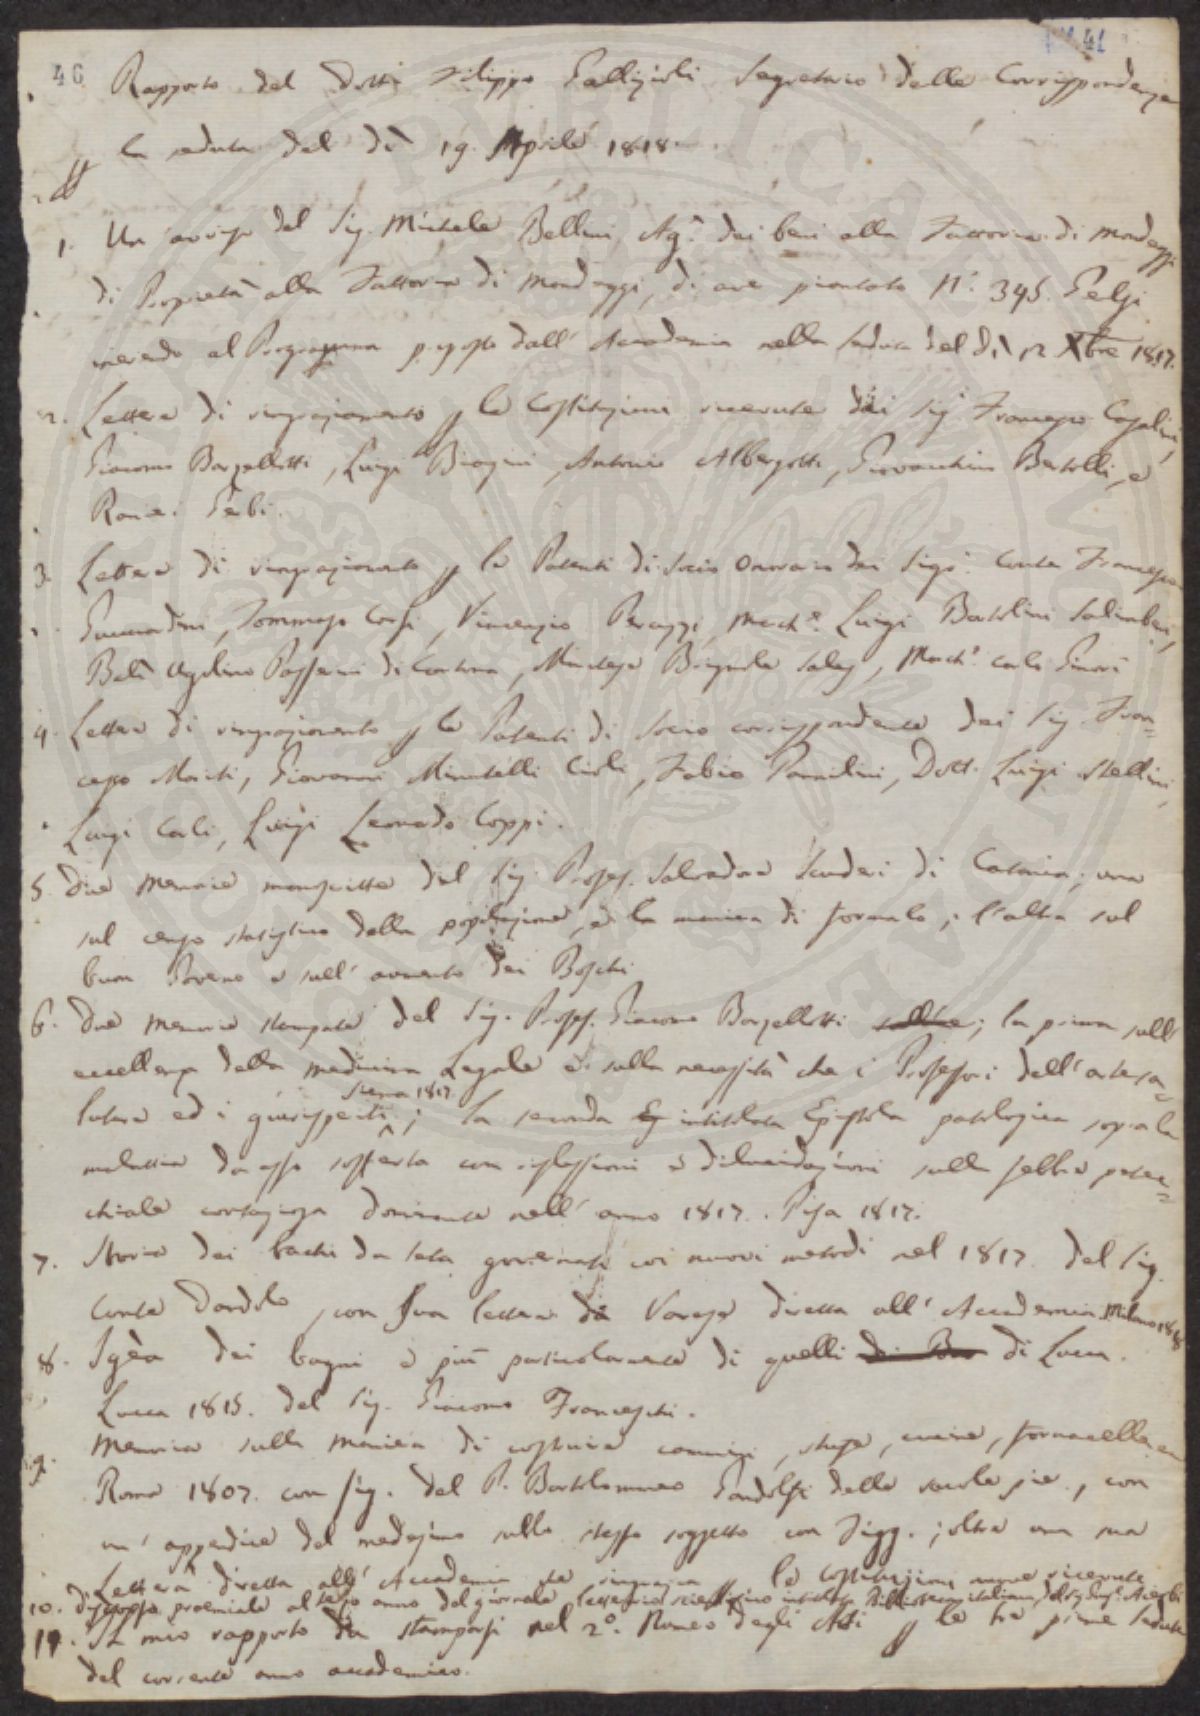 46
41
Rapporto del Dott. Filippo Gallizioli Segretario delle Corrispondenze
la seduta del dì 19. Aprile 1818.
1. Un avviso del Sig. Michele Bellini Ag. dei beni alla Fattoria di Mondeggi
di Proprietà alla Fattoria di Mondeggi, di aver piantato N. 345. Gelsi
inerendo al Programma proposto dall' Accademia nella Seduta del dì 12 Xbre 1817.
2. Lettere di ringraziamento p le Costituzioni ricevute dai Sig. Francesco
Giacomo Barzellotti, Luigi Biagini, Antonio Albergotti, Giovacchino Bertolli, e
Ranie. Gerbi.
3. Lettere di ringraziamento p le Patenti di Socio Onorario dei Sigi. Conte Francesco
Guicciardini, Tommaso Corsi, Vincenzio Peruzzi, March. Luigi Bartolini Salimbeni,
Balì Agolino Passerini di Cortona, Brignole Sales, March. Carlo Ginori
4. Lettere di ringraziamento p le Patenti di Socio corrispondente dei Sig. Fran=
cesco Mariti, Giovanni Minutelli Cioli, Fabio Pannilini, Dott. Luigi
Luigi Carli, Luigi Leonardo Coppi.
5. Due memorie manoscritte del Sig. Profess. Salvadore Scuderi di Catania; una
sul censo statistico della popolazione, e la maniera di formarlo; l'altra sul
buon Governo e sull' aumento dei Boschi
6. Due memorie stampate del Sig. Profess. Giacomo Barzellotti; la prima sull'
eccellenza della medicina Legale e sulla necessità che i Professori dell' arte sa=
lutare ed i giurisperiti
Siena 1817.
; la seconda intitolata Epistola patologica sopra la
malattia da esso sofferta con riflessioni e dilucidazioni sulla febbre petec=
chiale contagiosa dominante nell' anno 1817. Pisa 1817.
7. Storia dei bachi da seta governati coi nuovi metodi nel 1817. del Sig.
Conte Dandolo, con sua lettera da Varese diretta all' Accademia. Milano 1818
8. Igèa dei bagni e più particolarmente di quelli di Lucca.
Lucca 1815. del Sig. Giacomo Franceschi.
9. Memoria sulla maniera di costruire cammini, stufe, cucine, fornacelle
Roma 1807. con fig. del P. Bartolommeo Gandolfi delle scuole pie, con
un' appendice del medesimo sullo stesso soggetto con Figg.; oltre una sua
Lettera diretta all' Accademia p le Costituzioni ricevute
10. discorso proemiale al terzo anno del giornale letterario scientifico intitolato Biblioteca italiana, del Sig. Acerbi
11. Il mio rapporto da stamparsi nel 2°. Numero degli Atti p le tre prime Sedute
del corrente anno accademico.